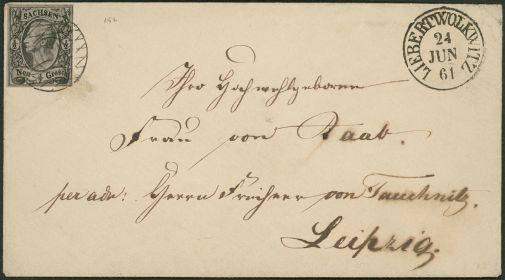 SACHSEN
Neu-Grosch.
LIEBERTWOLKWITZ
24
JUN
61
Ihro Hochwohlgeboren
Frau von Raab.
per adr: Herrn Freiherr von Tauchnitz.
Leipzig.